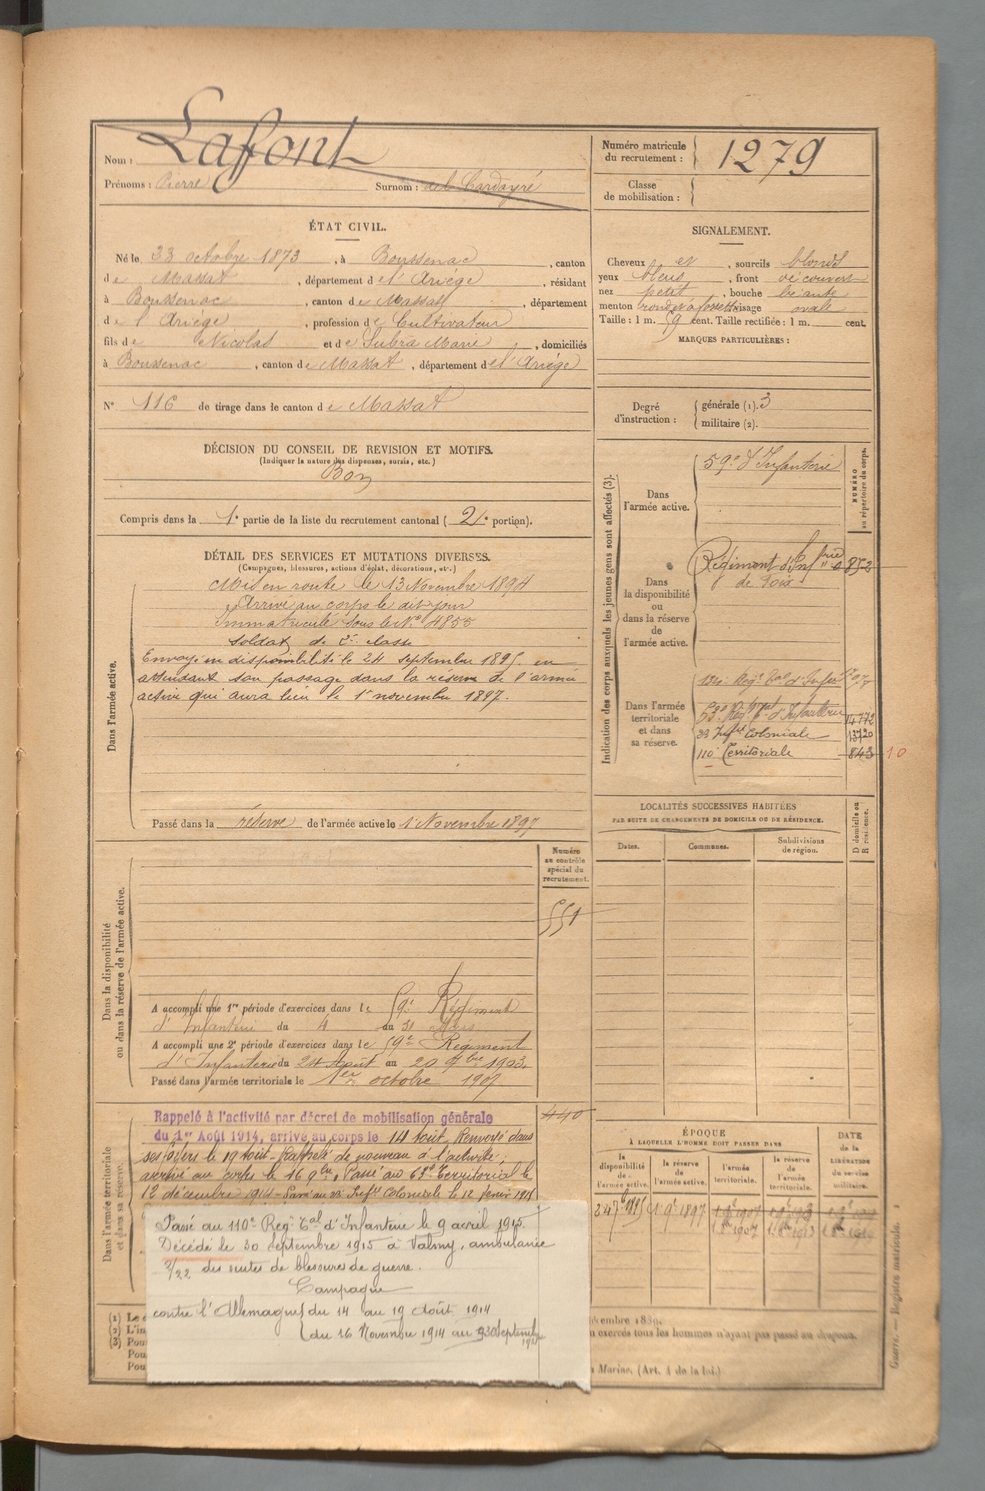 Nom : Lafont
Prénoms : Pierre Surnom :
Numéro matricule
du recrutement : 1279
Classe
de mobilisation :
ÉTAT CIVIL.
Né le octobre 1873, à Boussenac, canton
de Massat, département de l'Ariége, résidant
à Boussenac, canton de Massat, département
de l'Ariége, profession de Cultivateur
fils de Nicolas et de Subra Marie, domiciliés
à Boussenac, canton de Massat, département de l'Ariége
N° 116 de tirage dans le canton de Massat
DÉCISION DU CONSEIL DE REVISION ET MOTIFS.
(Indiquer la nature des dispenses, sursis, etc.)
Bon
Compris dans la 1e partie de la liste du recrutement cantonal (2e portion).
DÉTAIL DES SERVICES ET MUTATIONS DIVERSES.
(Campagnes, blessures, actions d'éclat, décorations, etc.)
Dans l'armée active.
Mis en route le 13 Novembre 1894
Arrivé au corps le dit jour
Immatriculé sous le N° 4855
Soldat de 2e classe
Envoyé en disponibilité le 24 septembre 1895 en
attendant son passage dans la réserve de l'armée
active qui aura lieu le 1er novembre 1897.
Passé dans la réserve de l'armée active le 1 Novembre 1897
Dans la disponibilité
ou dans la réserve de l'armée active.
Numéro
au contrôle
spécial du
recrutement.
551
A accompli une 1re période d'exercices dans le 59e Régiment
d'Infanterie du 4 au 31 Mars
A accompli une 2e période d'exercices dans le 59e Régiment
d'Infanterie du 24 Août au 20 7bre 1903.
Passé dans l'armée territoriale le 1er octobre 1907
Dans l'armée territoriale
et dans sa réserve.
440
Rappelé à l'activité par décret de mobilisation générale
du 1er Août 1914, arrivé au corps le 14 Août. Renvoyé dans
ses foyers le 19 Août. Rappelé de nouveau à l'activité;
arrivé au corps le 16 9bre. Passé au 63e Territorial le
12 décembre 1914 - Passé au 33 Inf.ie Coloniale le 12 février 1915
Passé au 110e Reg. Tal d'Infanterie le 9 avril 1915.
Décédé le 30 Septembre 1915 à Valmy, ambulance
2/22 des suites de blessures de guerre.
Campagne
contre l'Allemagne du 14 au 19 Août 1914
(du 16 Novembre 1914 au 30 Septembre
1915
SIGNALEMENT.
Cheveux et, sourcils blonds
yeux bleus, front découvert
nez petit, bouche béante
menton rond à fossette visage ovale
Taille : 1 m. 59 cent. Taille rectifiée : 1 m. cent.
MARQUES PARTICULIÈRES :
Degré
d'instruction :
générale (1). 3
militaire (2).
Indication des corps auxquels les jeunes gens sont affectés (3).
NUMÉRO
au répertoire du corps.
Dans
l'armée active.
59e d'Infanterie
Dans
la disponibilité
ou
dans la réserve
de
l'armée active.
Régiment d'Inf.rie
de Foix
Dans l'armée
territoriale
et dans
sa réserve.
63e Reg. Tal d'Infanterie 14772
33 Inf.ie Coloniale 13720
110 Territoriale 843 10
LOCALITÉS SUCCESSIVES HABITÉES
PAR SUITE DE CHANGEMENTS DE DOMICILE OU DE RÉSIDENCE.
Dates.
Communes.
Subdivisions
de région.
D domicile ou
R résidence.
ÉPOQUE
À LAQUELLE L'HOMME DOIT PASSER DANS
DATE
de la
LIBÉRATION
du service
militaire.
la
disponibilité
de
l'armée active.
la
réserve de
l'armée active.
l'armée
territoriale.
la
réserve de
l'armée
territoriale.
(1) Le
(2) L'in
(3) Pou
Pou
Pou
écembre 1889.
n exercés tous les hommes n'ayant pas passé au drapeau.
Marine. (Art. 4 de la loi.)
Guerre. — Registre matricule.